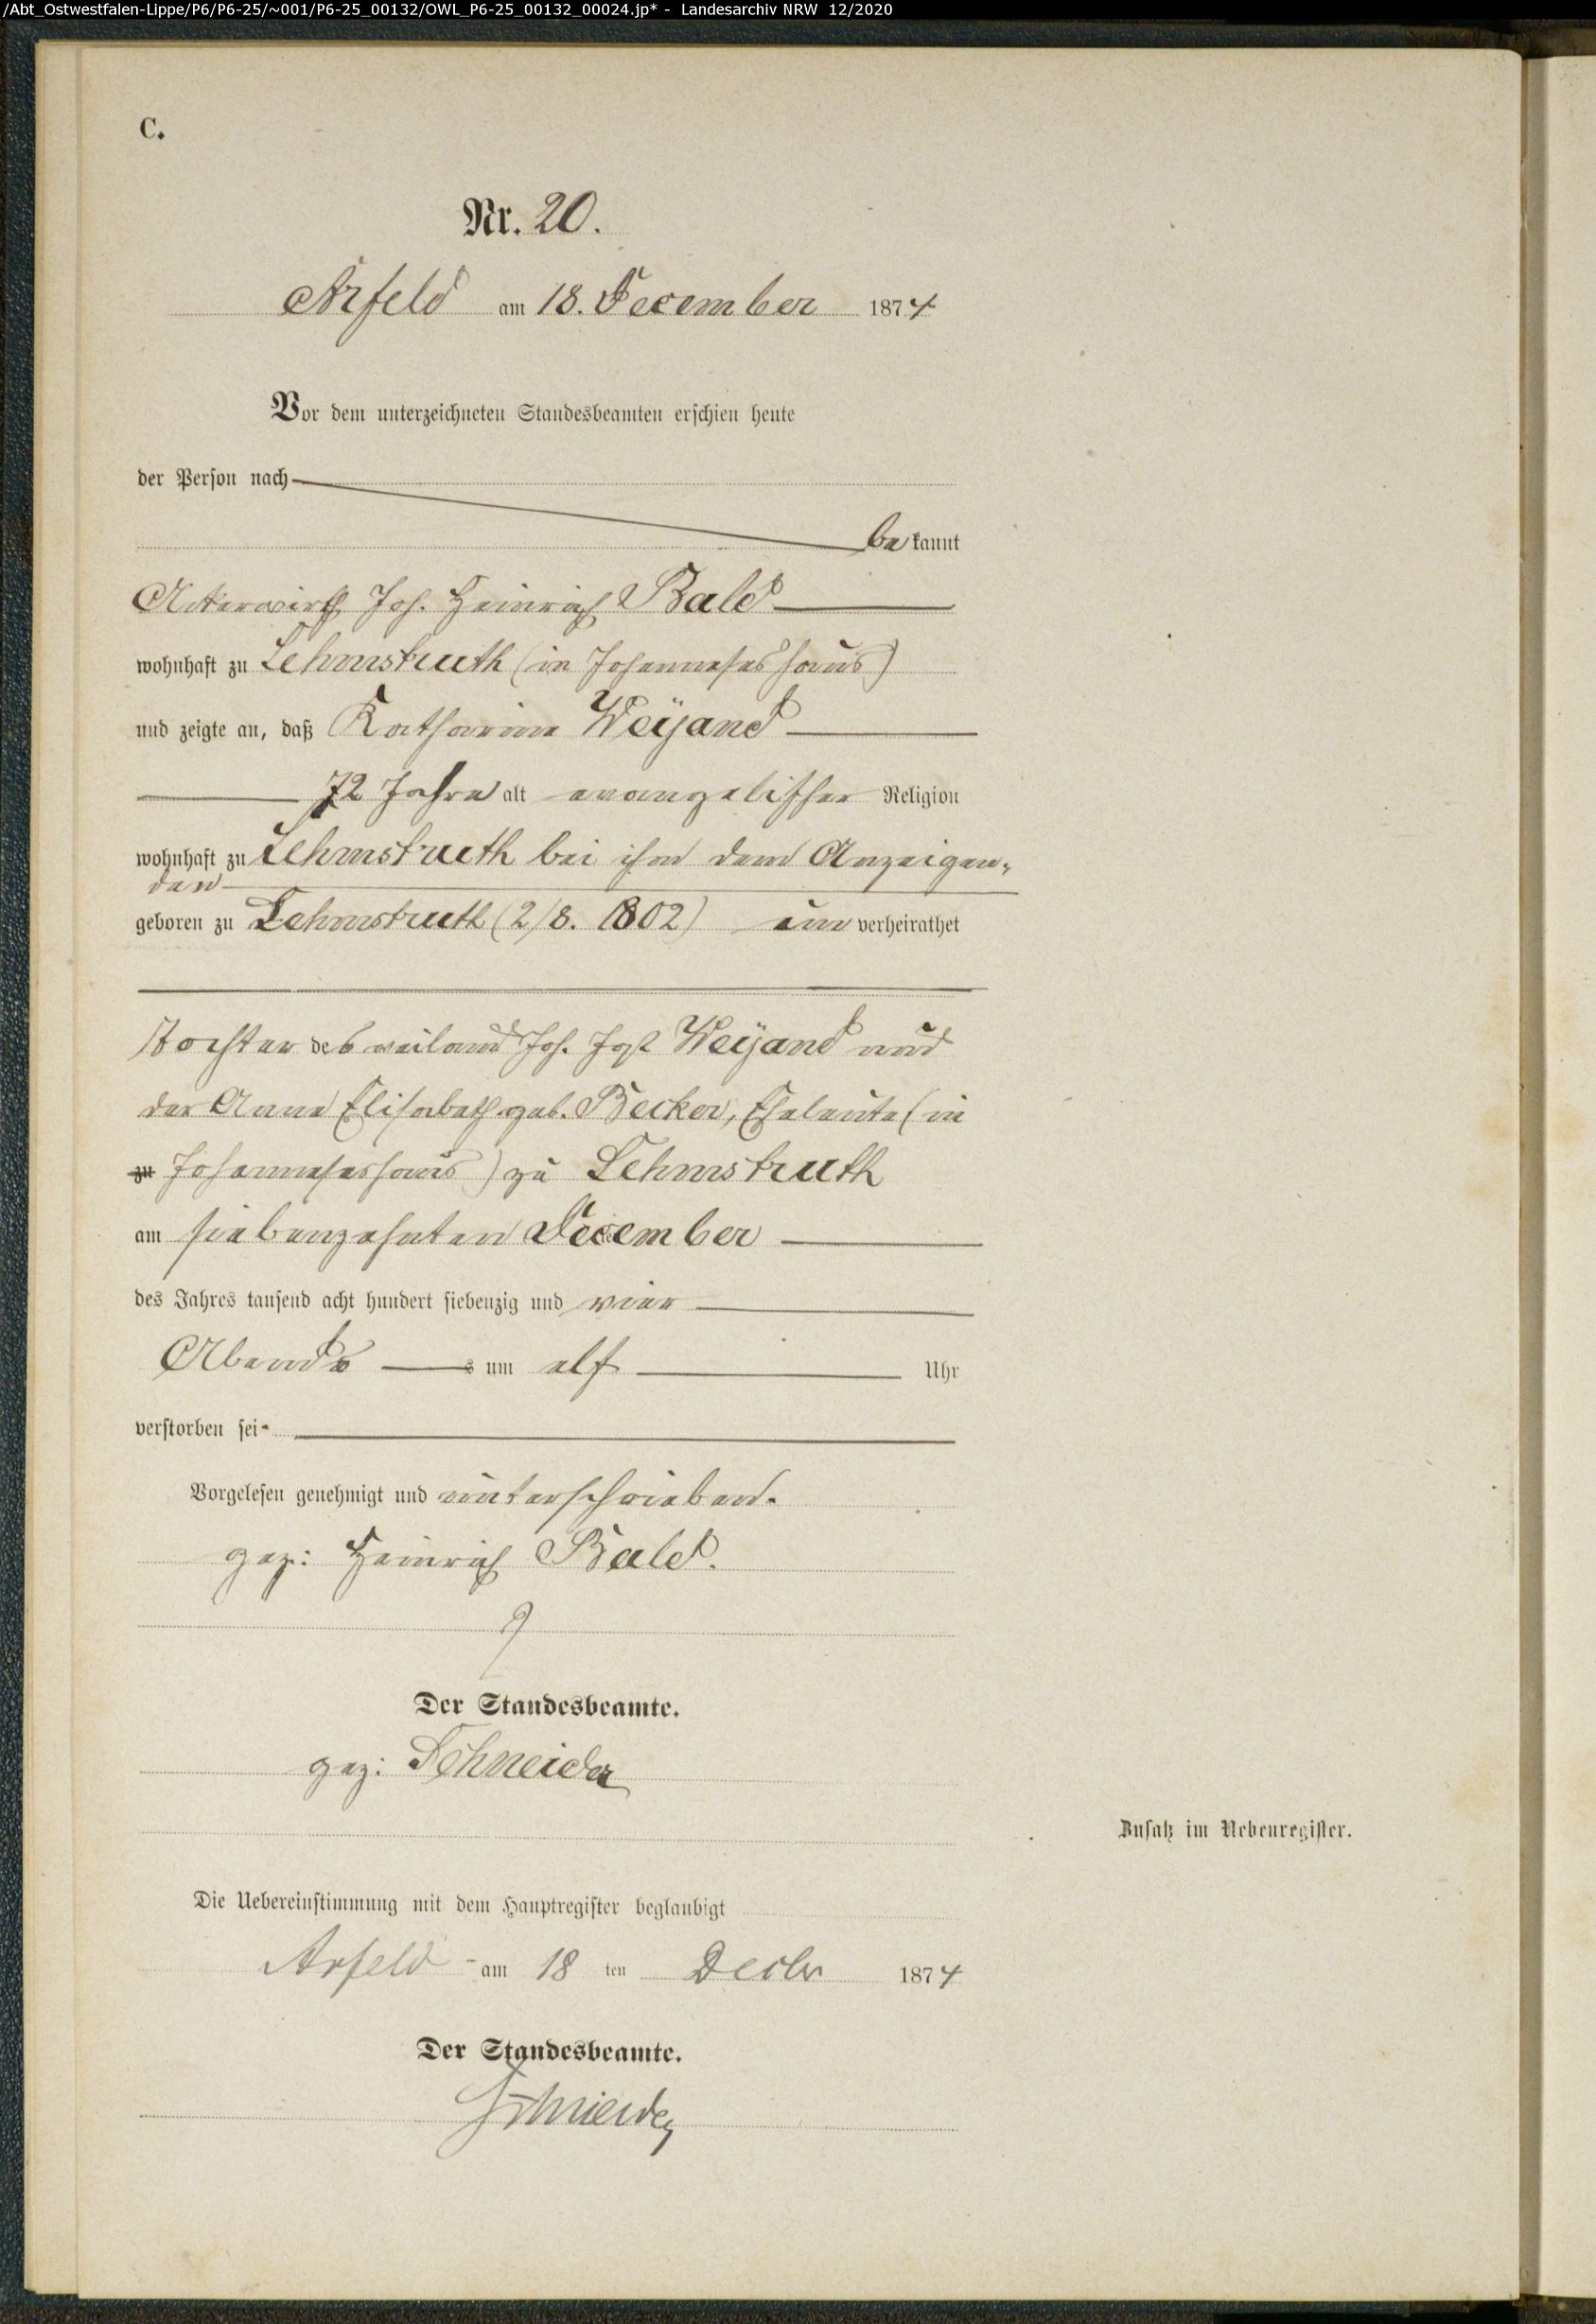 /Abt_Ostwestfalen-Lippe/P6/P6-25/~001/P6-25_00132/OWL_P6-25_00132_00024.jp* - Landesarchiv NRW 12/2020
C.
Nr. 20.
Arfeld am 18. December 1874
Vor dem unterzeichneten Standesbeamten erschien heute
der Person nach
be kannt
Ackerwirth Joh. Heinrich Bald
wohnhaft zu Lehmstruth (in Johanneses haus)
und zeigte an, daß Katharine Weÿand
72 Jahre alt evangelischer Religion
wohnhaft zu Lehmstruth bei ihm dem Anzeigen-
den
geboren zu Lehmstruth (2/8. 1802) un verheirathet
Tochter des weiland Joh. Jost Weÿand und
der Anna Elisabeth geb. Becker, Eheleute (in
zu Johanneseshaus) zu Lehmstruth
am siebenzehnten December
des Jahres tausend acht hundert siebenzig und vier
Abends s um elf Uhr
verstorben sei
Vorgelesen genehmigt und unterschrieben.
gez: Heinrich Bald.
Der Standesbeamte.
gez: Schneider
Zusatz im Nebenregister.
Die Uebereinstimmung mit dem Hauptregister beglaubigt
Arfeld am 18 ten Decbr 1874
Der Standesbeamte.
Schneider